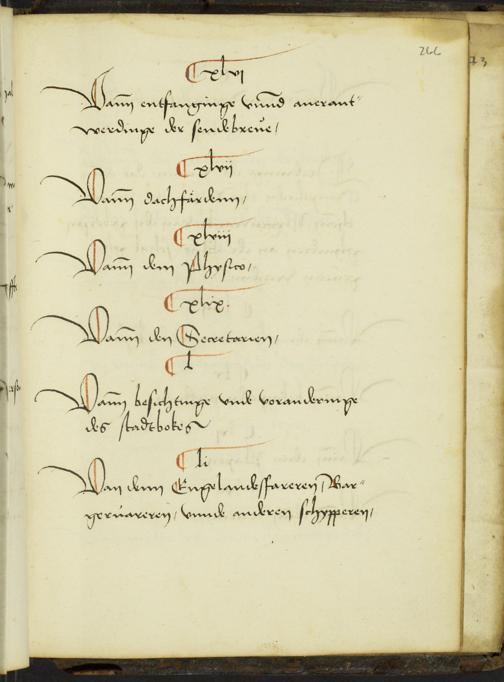 266
73
xlvi
Vann entfanginge vnnd anerant-
werdinge der sendebreue,
xlvii
Vann dachfardenn,
xlviii
Vann dem Physico,
xlix.
Vann den Secretarien,
l
Vann besichtinge vnde voranderinge
des stadtbokes
li
Van denn Engelandesffareren, Bar-
geruareren, vnnde anderen schypperen,